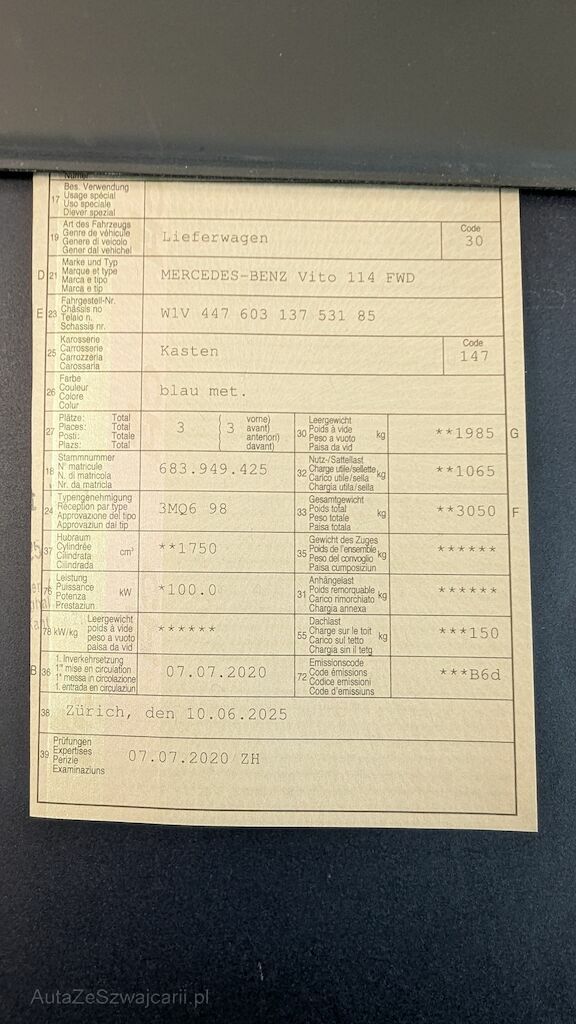 17 Bes. Verwendung
Usage spécial
Uso speciale
Diever spezial
19 Art des Fahrzeugs
Genre de véhicule
Genere di veicolo
Gener dal vehichel
Lieferwagen
Code
30
D 21 Marke und Typ
Marque et type
Marca e tipo
Marca e tip
MERCEDES-BENZ Vito 114 FWD
E 23 Fahrgestell-Nr.
Châssis no
Telaio n.
Schassis nr.
W1V 447 603 137 531 85
25 Karosserie
Carrosserie
Carrozzeria
Carossaria
Kasten
Code
147
26 Farbe
Couleur
Colore
Colur
blau met.
27 Plätze: Total
Places: Total
Posti: Totale
Plazs: Total
3 (3 vorne)
avant)
anteriori)
davant)
30 Leergewicht
Poids à vide
Peso a vuoto
Paisa da vid
kg
**1985 G
18 Stammnummer
N° matricule
N. di matricola
Nr. da matricla
683.949.425
32 Nutz-/Sattellast
Charge utile/sellette
Carico utile/sella
Chargia utila/sella
kg
**1065
24 Typengenehmigung
Réception par type
Approvazione del tipo
Approvaziun dal tip
3MQ6 98
33 Gesamtgewicht
Poids total
Peso totale
Paisa totala
kg
**3050 F
37 Hubraum
Cylindrée
Cilindrata
Cilindrada
cm³
**1750
35 Gewicht des Zuges
Poids de l'ensemble
Peso del convoglio
Paisa cumposiziun
kg
******
76 Leistung
Puissance
Potenza
Prestaziun
kW
*100.0
31 Anhängelast
Poids remorquable
Carico rimorchiato
Chargia annexa
kg
******
78 kW/kg Leergewicht
poids à vide
peso a vuoto
paisa da vid
******
55 Dachlast
Charge sur le toit
Carico sul tetto
Chargia sin il tetg
kg
***150
B 36 1. Inverkehrsetzung
1re mise en circulation
1a messa in circolazione
1. entrada en circulaziun
07.07.2020
72 Emissionscode
Code émissions
Codice emissioni
Code d'emissiuns
***B6d
38 Zürich, den 10.06.2025
39 Prüfungen
Expertises
Perizie
Examinaziuns
07.07.2020 ZH
AutaZeSzwajcarii.pl